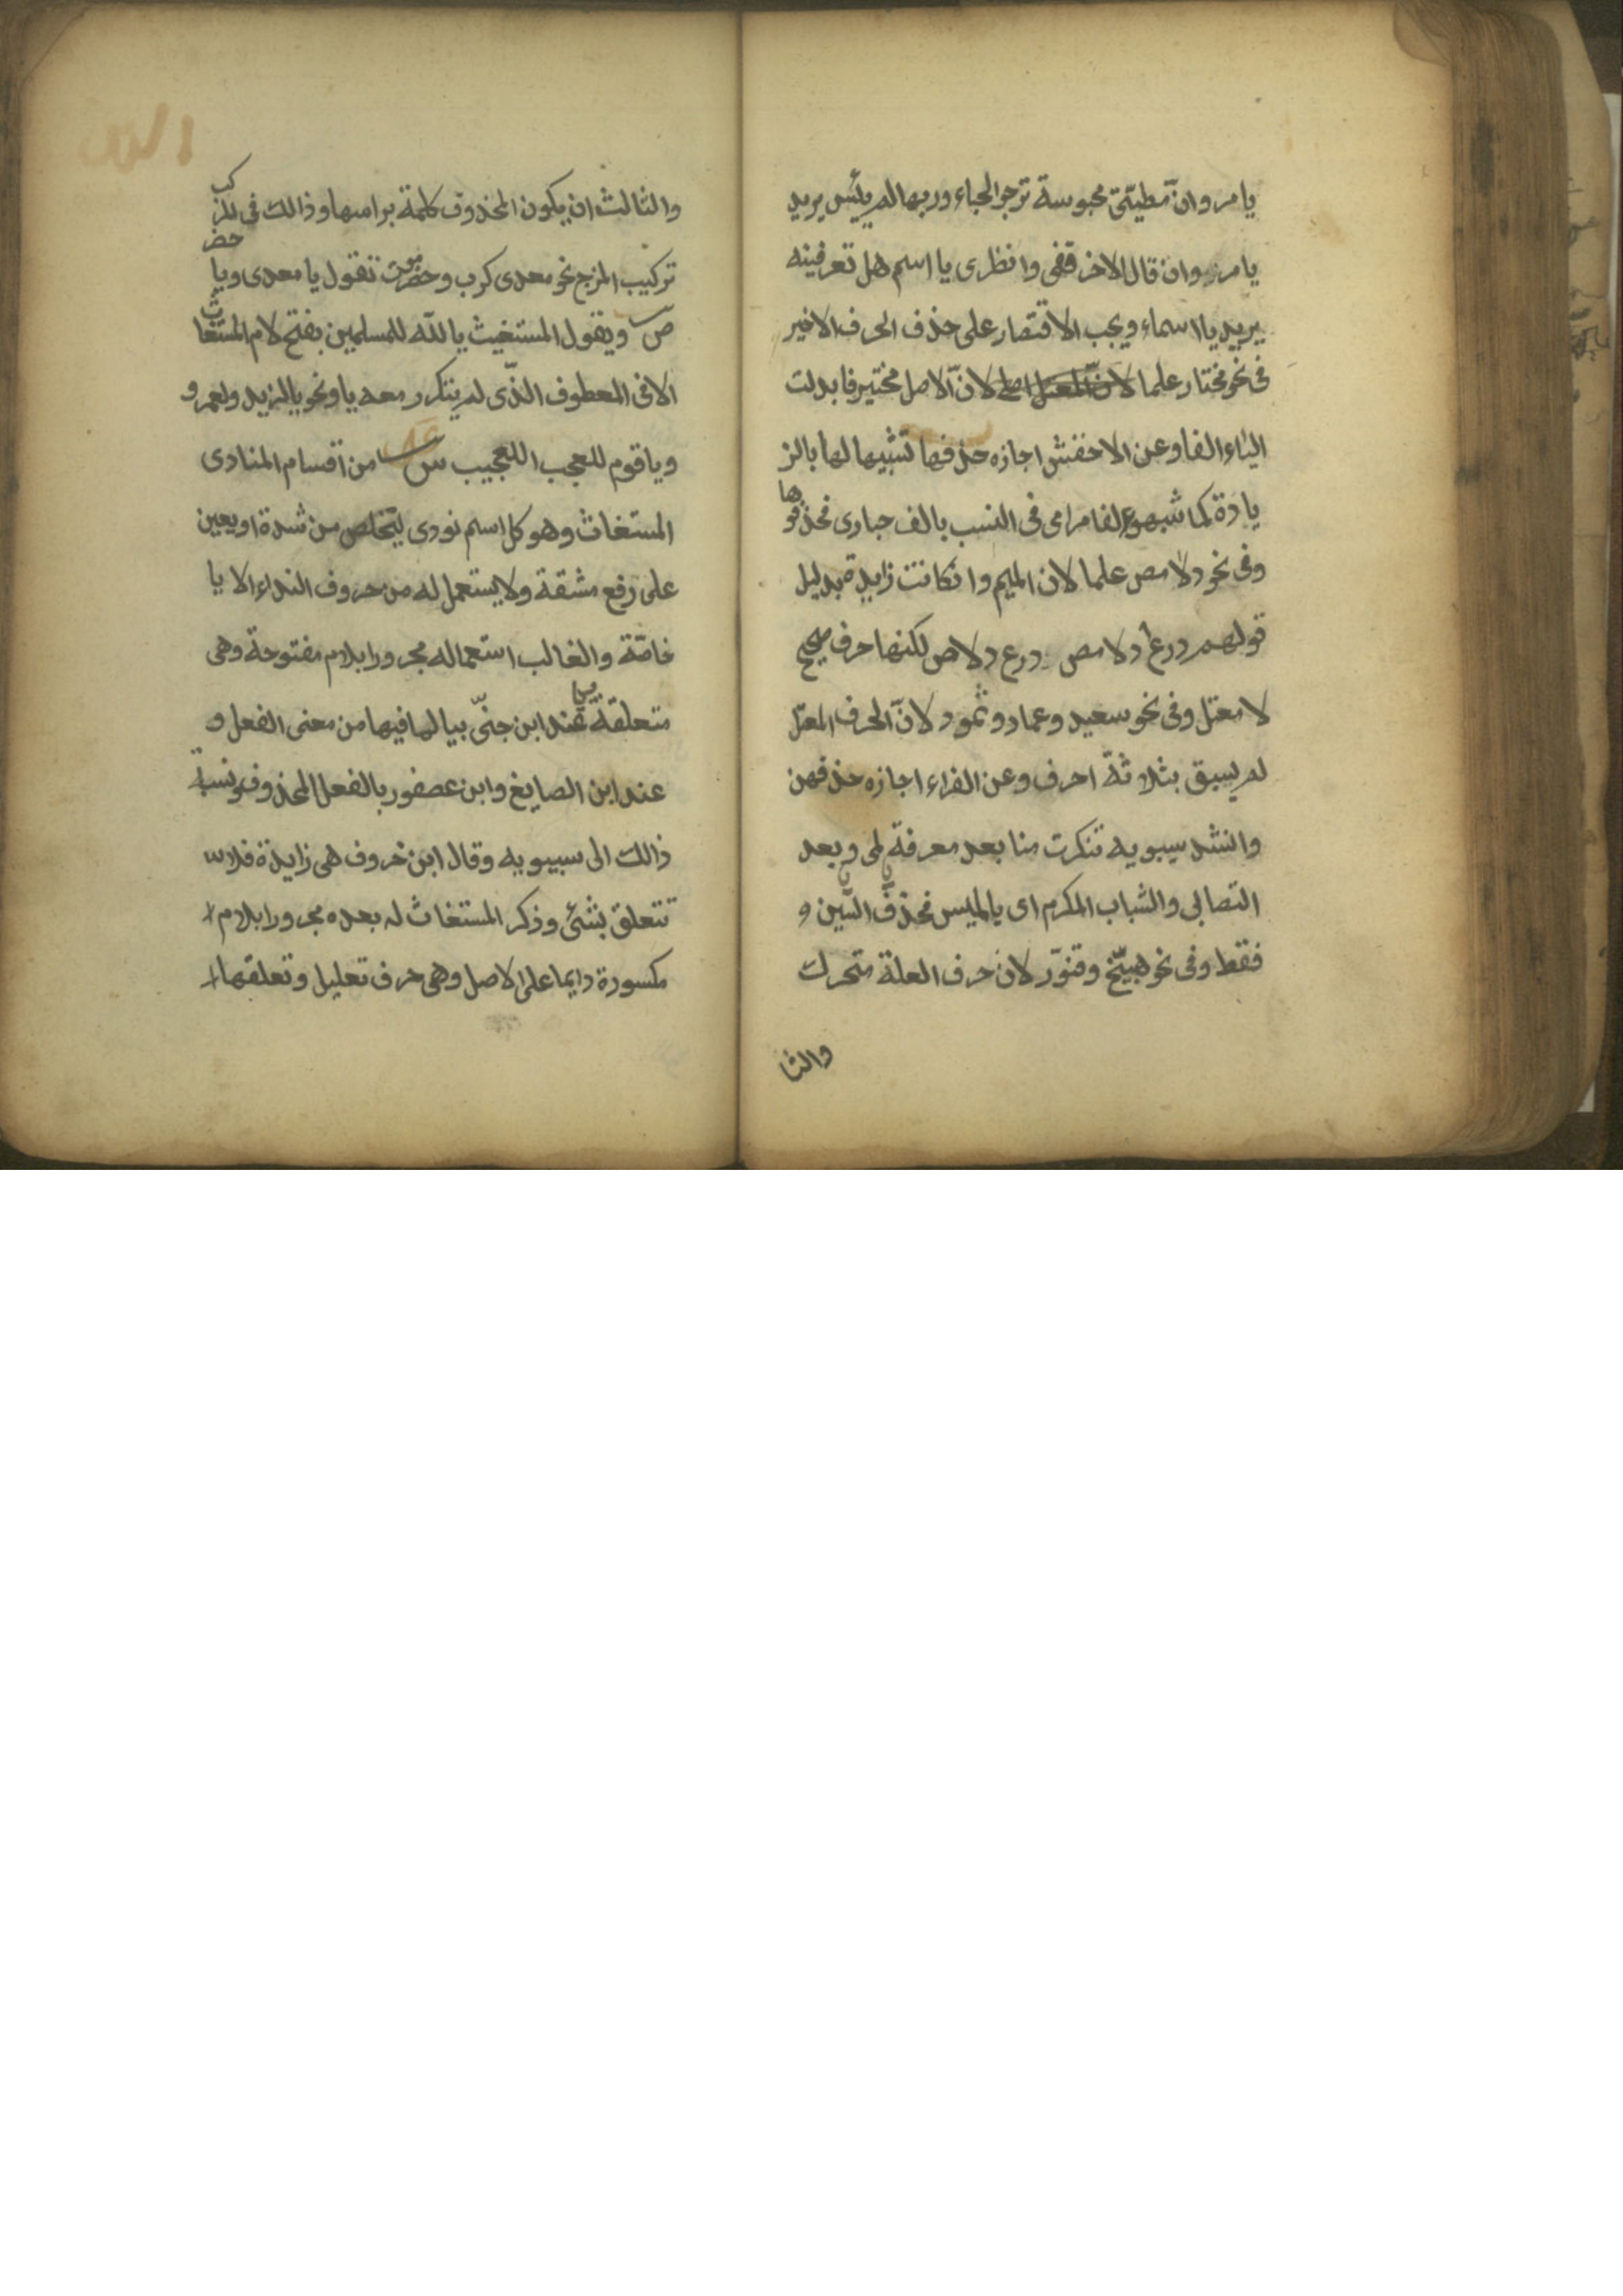 يا مروان مطيتى محبوسة ترجو الحباء وربها لم ييئس يريد
يا مروان قال الاخر قفى وانظرى يا اسم هل تعرفينه
يريد يا اسماء ويجب الاقتصار على حذف الحرف الاخير
فى نحو مختار علما لان الاصل مختير فابدلت
الياء الفا وعن الاخفش اجازه حذفها تشبيها لها بالز
يادة كما شبهو الف مرامى فى النسب بالف حبارى فحذفوها
وفى نحو دلامص علما لان الميم وانكانت زايدة بدليل
قولهم درع دلامص ودرع دلاص لكنها حرف صحيح
لا معتل وفى نحو سعيد وعماد وثمود لانّ الحرف المعتل
لم يسبق بثلاثة احرف وعن الفراء اجازه حذفهن
وانشد سيبويه تنكرت منا بعد معرفة لمى وبعد
التصابى والشباب المكرم اى يا لميس فحذف السين
فقط وفى نحو هبيّخ وقنوّر لان حرف العلة متحرك
والثا
والثالث ان يكون المحذوف كلمة براسها وذالك فى المركب
تركيب المزج نحو معدى كرب وحضرموت تقول يا معدى ويا حضر
ص ويقول المستغيث يا لله للمسلمين بفتح لام المستغاث
الا فى المعطوف الذّى لم يتكرر معه يا ونحو يا لزيد ولعمرو
ويا قوم للعجب العجيب ش من اقسام المنادى
المستغاث وهو كل اسم نودى ليتخلص من شدة او يعين
على رفع مشقة ولا يستعمل له من حروف النداء الا يا
خاصّة والغالب استعماله مجرورا بلام مفتوحة وهى
متعلقة عند ابن جنّى بيا لما فيها من معنى الفعل و
عند ابن الصايغ وابن عصفور بالفعل المحذوف ونسبة
ذالك الى سيبويه وقال ابن خروف هى زايدة فلا
تتعلق بشئ وذكر المستغاث له بعده مجرورا بلام
مكسورة دايما على الاصل وهى حرف تعليل وتعلقها